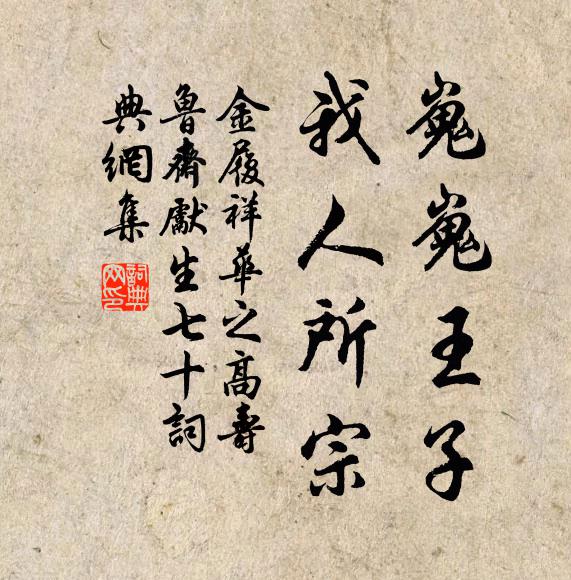 嵬嵬王子
我人所宗
金履祥華之高壽
魯齋獻生七十詞
典網集
詞典網印